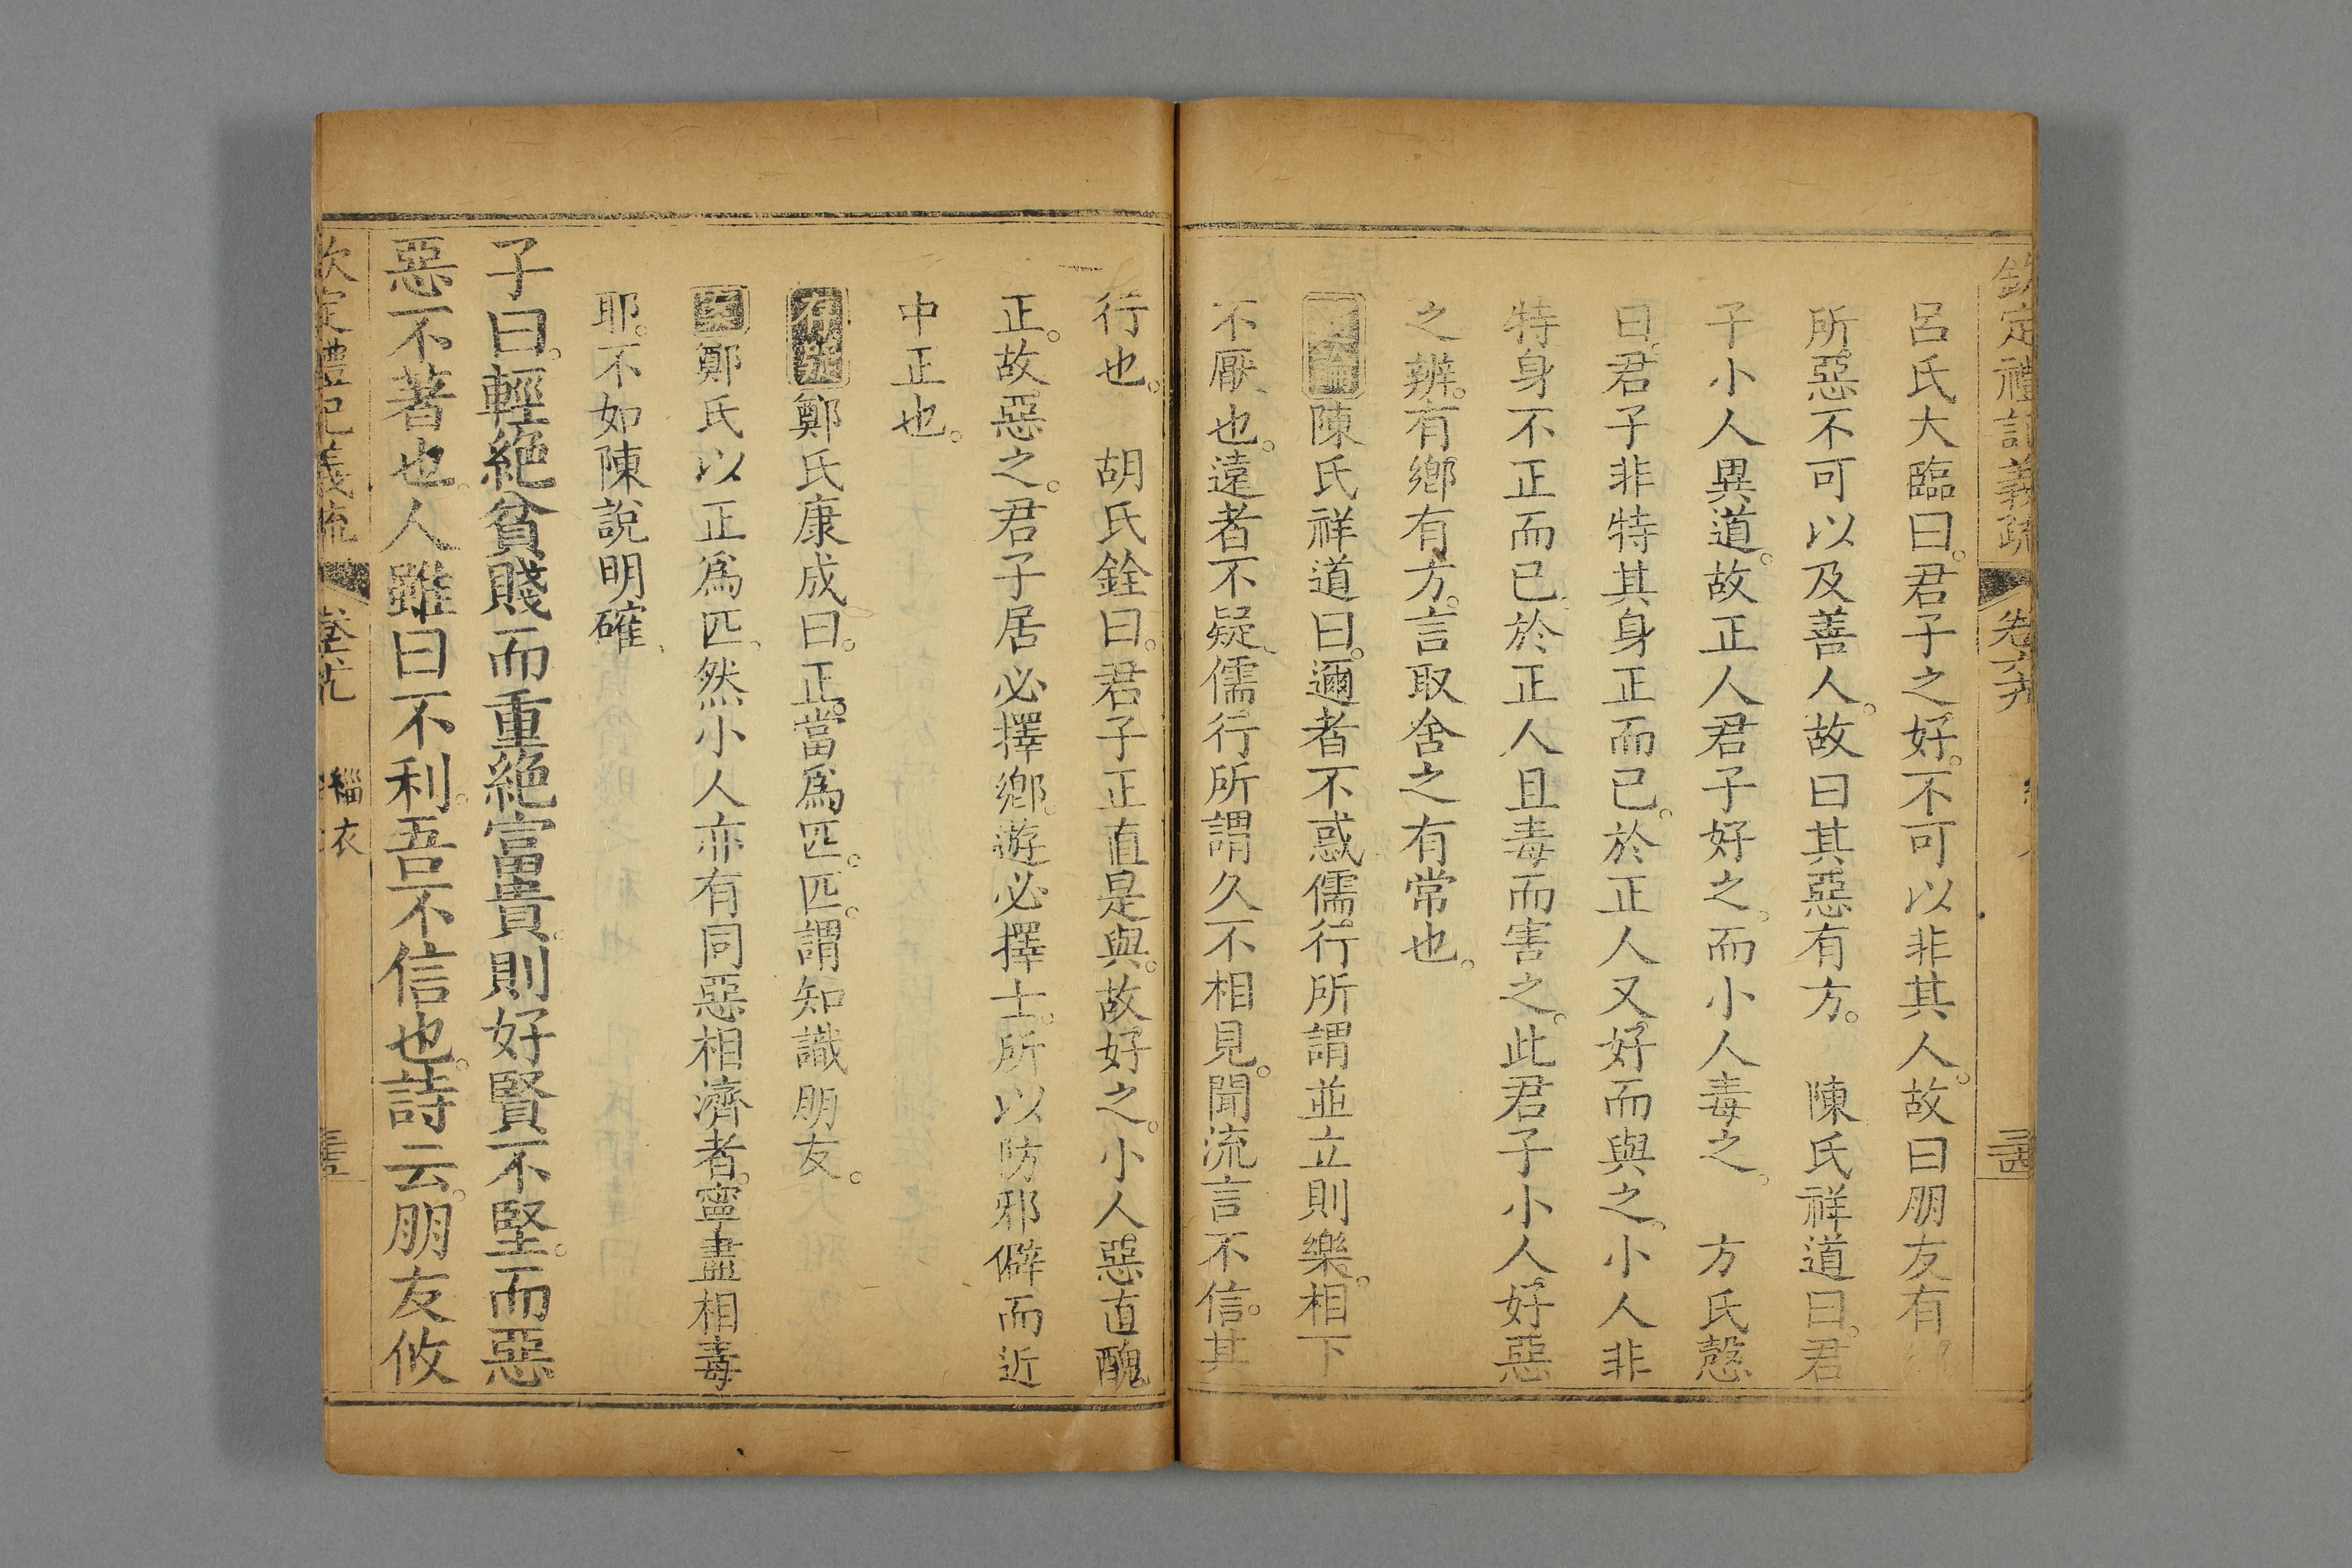 欽定禮記義疏 卷六十九
呂氏大臨曰君子之好不可以非其人故曰朋友有
所惡不可以及善人故曰其惡有方 陳氏祥道曰君
子小人異道故正人君子好之而小人毒之 方氏慤
曰君子非特其身正而已於正人又好而與之小人非
特身不正而已於正人且毒而害之此君子小人好惡
之辨有鄉有方言取舍之有常也
陳氏祥道曰邇者不惑儒行所謂並立則樂相下
不厭也遠者不疑儒行所謂久不相見聞流言不信其
行也 胡氏銓曰君子正直是與故好之小人惡直醜
正故惡之君子居必擇鄉遊必擇士所以防邪僻而近
中正也
存疑鄭氏康成曰正當爲匹匹謂知識朋友
案鄭氏以正爲匹然小人亦有同惡相濟者寧盡相毒
耶不如陳說明確
子曰輕絕貧賤而重絕富貴則好賢不堅而惡
惡不著也人雖曰不利吾不信也詩云朋友攸
欽定禮記義疏 緇衣